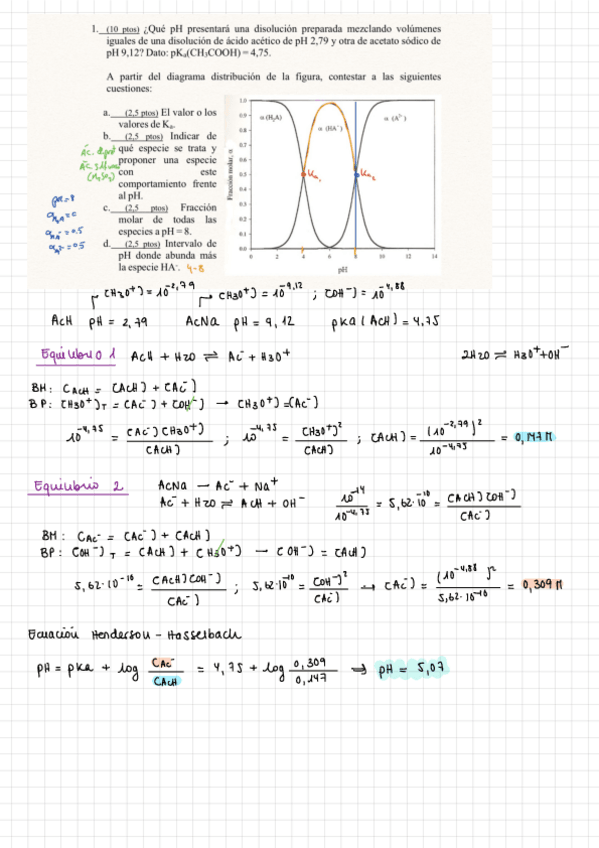 1. (10 ptos) ¿Qué pH presentará una disolución preparada mezclando volúmenes
iguales de una disolución de ácido acético de pH 2,79 y otra de acetato sódico de
pH 9,12? Dato: pKa(CH3COOH) = 4,75.
A partir del diagrama distribución de la figura, contestar a las siguientes
cuestiones:
a. (2,5 ptos) El valor o los
valores de Ka.
b. (2,5 ptos) Indicar de
qué especie se trata y
proponer una especie
con este
comportamiento frente
al pH.
c. (2,5 ptos) Fracción
molar de todas las
especies a pH = 8.
d. (2,5 ptos) Intervalo de
pH donde abunda más
la especie HA-. 4-8
pH = 8
αH2A = 0
αHA- = 0.5
αA2- = 0.5
Fracción molar, α
1.0
0.9
0.8
0.7
0.6
0.5
0.4
0.3
0.2
0.1
0.0
α (H2A)
α (HA-)
α (A2-)
Ka1
Ka2
0 2 4 6 8 10 12 14
pH
[H3O+] = 10^-2,79 [H3O+] = 10^-9,12 ; [OH-] = 10^-4,88
AcH pH = 2,79 AcNa pH = 9,12 pKa (AcH) = 4,75
Equilibrio 1 AcH + H2O ⇌ Ac- + H3O+ 2H2O ⇌ H3O+ + OH-
BM: CAcH = [AcH] + [Ac-]
BP: [H3O+]T = [Ac-] + [OH-] → [H3O+] = [Ac-]
10^-4,75 = [Ac-][H3O+] / [AcH] ; 10^-4,75 = [H3O+]^2 / [AcH] ; [AcH] = (10^-2,79)^2 / 10^-4,75 = 0,147 M
Equilibrio 2 AcNa — Ac- + Na+
Ac- + H2O ⇌ AcH + OH- 10^-14 / 10^-4,75 = 5,62·10^-10 = [AcH][OH-] / [Ac-]
BM: CAc- = [Ac-] + [AcH]
BP: [OH-]T = [AcH] + [H3O+] — [OH-] = [AcH]
5,62·10^-10 = [AcH][OH-] / [Ac-] ; 5,62·10^-10 = [OH-]^2 / [Ac-] → [Ac-] = (10^-4,88)^2 / 5,62·10^-10 = 0,309 M
Ecuación Henderson - Hasselbach
pH = pKa + log CAc- / CAcH = 4,75 + log 0,309 / 0,147 ⟹ pH = 5,07